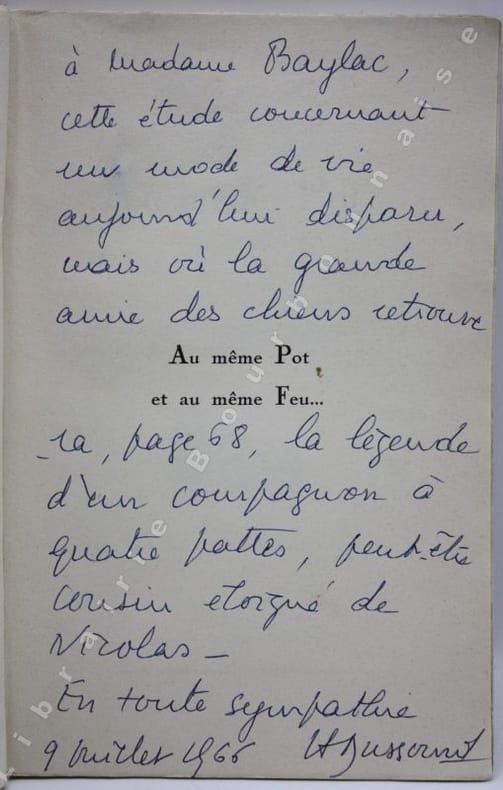 à Madame Baylac,
cette étude concernant
un mode de vie
aujourd'hui disparu,
mais où la grande
amie des chiens retrouve
Au même Pot
et au même Feu...
-ra, page 68, la légende
d'un compagnon à
quatre pattes, peut-être
cousin éloigné de
Nicolas -
En toute sympathie
9 Juillet 1966 H Dussourd
Librairie Bourbonnaise